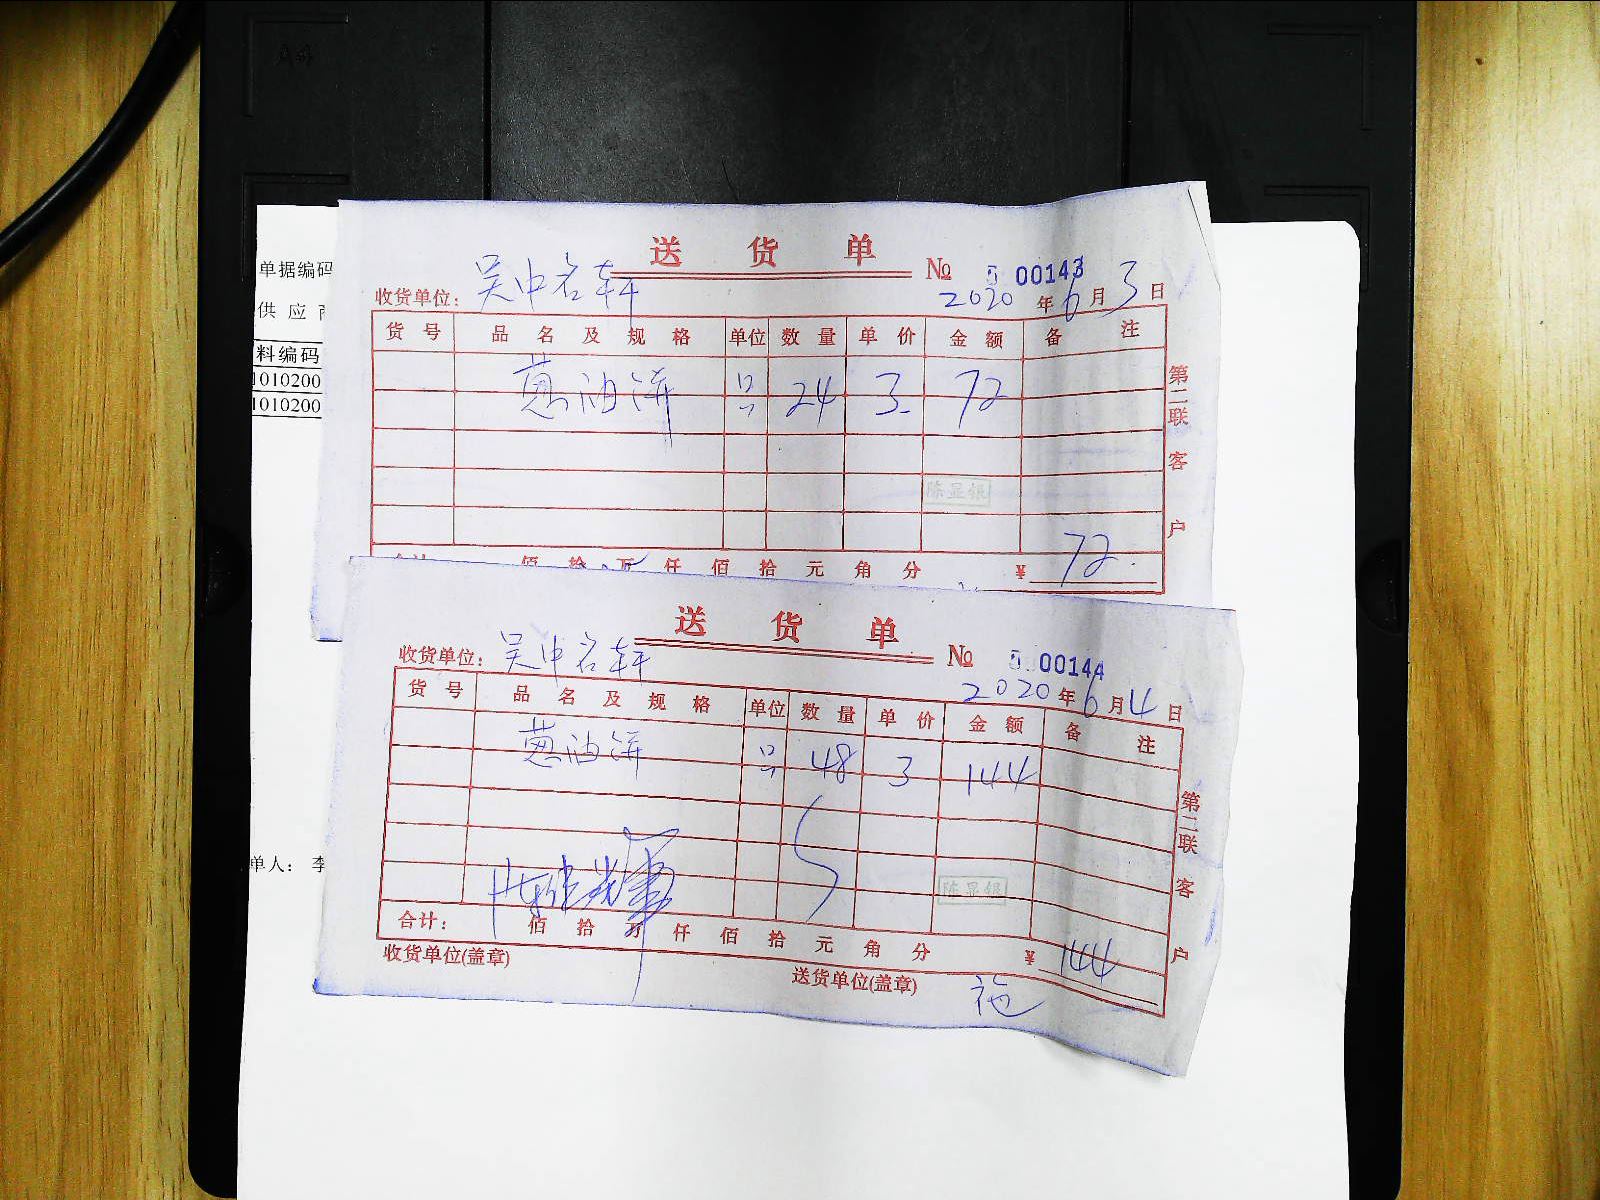 单据编码
供 应
料编码
1010200
1010200
单人： 李
送 货 单
№ 00143
收货单位： 吴中名轩
2020 年 6 月 3 日
货 号 品 名 及 规 格 单位 数 量 单 价 金 额 备 注
葱油饼 只 24 3 72
陈显银
佰 拾 万 仟 佰 拾 元 角 分 ¥ 72
第二联 客户
送 货 单
№ 00144
收货单位： 吴中名轩
2020 年 6 月 4 日
货 号 品 名 及 规 格 单位 数 量 单 价 金 额 备 注
葱油饼 只 48 3 144
陈显银
合计： 佰 拾 万 仟 佰 拾 元 角 分 ¥ 144
收货单位(盖章) 送货单位(盖章) 施
第二联 客户